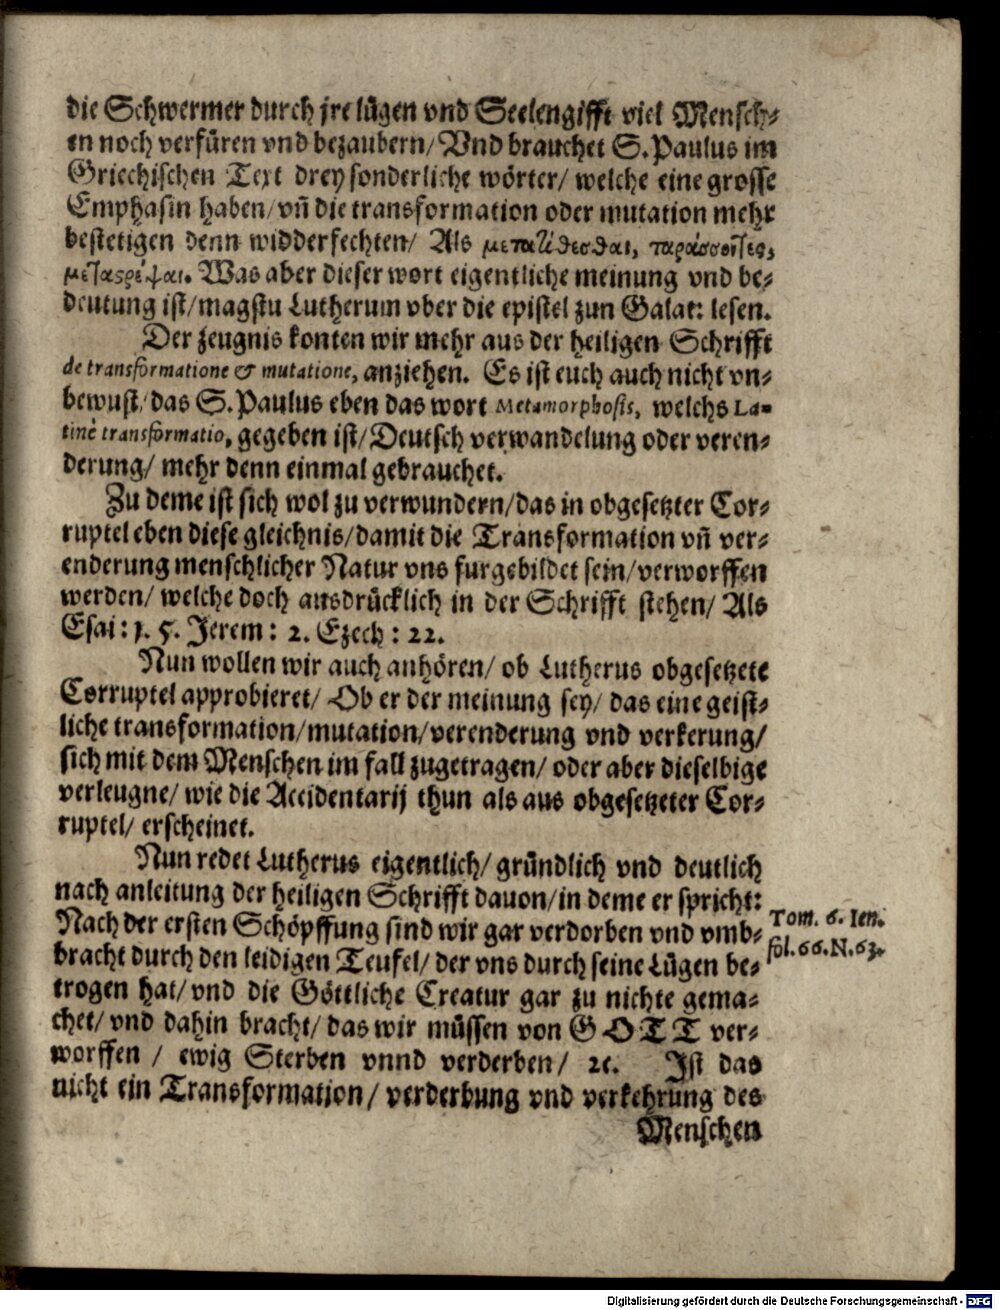 die Schwermer durch jre lügen vnd Seelengifft viel Mensch⸗
en noch verfüren vnd bezaubern/ Vnd brauchet S. Paulus im
Griechischen Text drey sonderliche wörter/ welche eine grosse
Emphasin haben/ vñ die transformation oder mutation mehr
bestetigen denn widderfechten/ Als μετατίθεσθαι, ταράσσοντες,
μεταστρέψαι. Was aber dieser wort eigentliche meinung vnd be⸗
deutung ist/ magstu Lutherum vber die epistel zun Galat: lesen.
Der zeugnis konten wir mehr aus der heiligen Schrifft
de transformatione & mutatione, anziehen. Es ist euch auch nicht vn⸗
bewust/ das S. Paulus eben das wort Metamorphosis, welchs La⸗
tinè transformatio, gegeben ist/ Deutsch verwandelung oder veren⸗
derung/ mehr denn einmal gebrauchet.
Zu deme ist sich wol zu verwundern/ das in obgesetzter Cor⸗
ruptel eben diese gleichnis/ damit die Transformation vñ ver⸗
enderung menschlicher Natur vns furgebildet sein/ verworffen
werden/ welche doch ausdrücklich in der Schrifft stehen/ Als
Esai: 1. 5. Jerem: 2. Ezech: 22.
Nun wollen wir auch anhören/ ob Lutherus obgesetzete
Corruptel approbieret/ Ob er der meinung sey/ das eine geist⸗
liche transformation/ mutation/ verenderung vnd verkerung/
sich mit dem Menschen im fall zugetragen/ oder aber dieselbige
verleugne/ wie die Accidentarij thun als aus obgesetzeter Cor⸗
ruptel/ erscheinet.
Nun redet Lutherus eigentlich/ gründlich vnd deutlich
nach anleitung der heiligen Schrifft dauon/ in deme er spricht:
Nach der ersten Schöpffung sind wir gar verdorben vnd vmb⸗
Tom. 6. Ien.
bracht durch den leidigen Teufel/ der vns durch seine Lügen be⸗
fol. 66. N. 63.
trogen hat/ vnd die Göttliche Creatur gar zu nichte gema⸗
chet/ vnd dahin bracht/ das wir müssen von GOTT ver⸗
worffen / ewig Sterben vnnd verderben/ ꝛc. Ist das
nicht ein Transformation/ verderbung vnd verkehrung des
Menschen
Digitalisierung gefördert durch die Deutsche Forschungsgemeinschaft - DFG